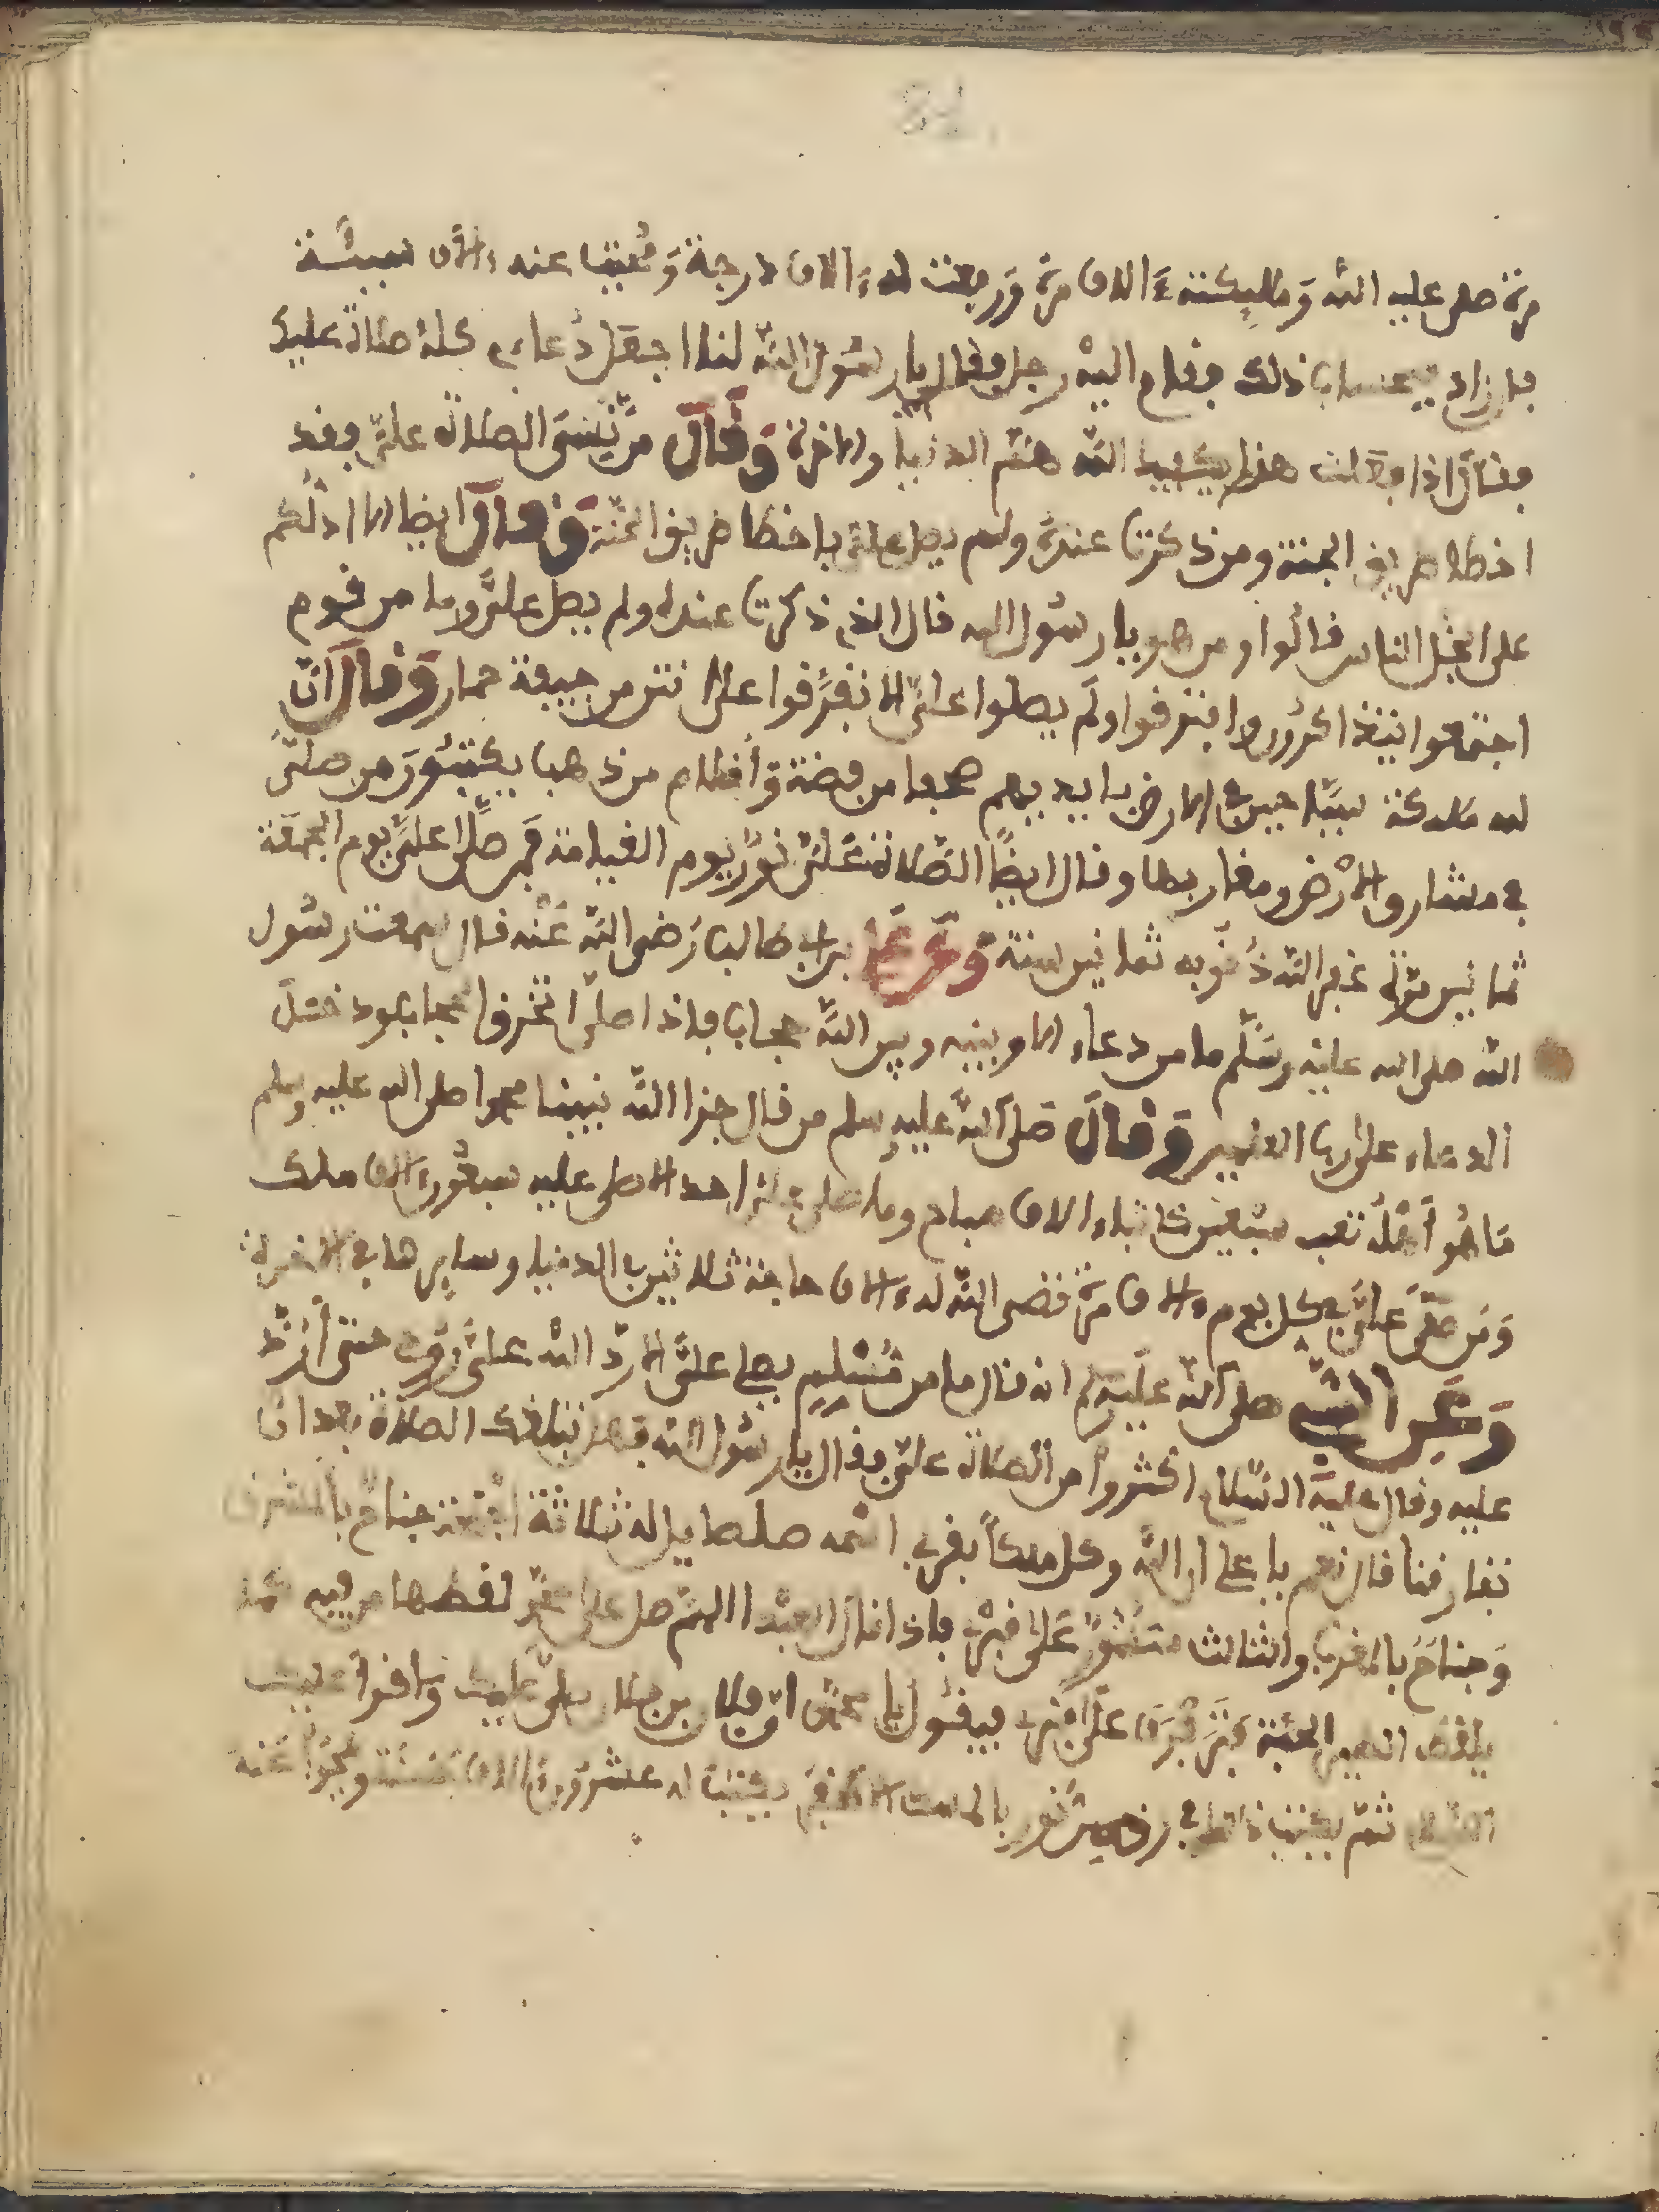 مرة صلى عليه الله وملبكته ءالاف مرة ورجعت له ءالاف درجة ومحيت عنه ءالاف سيئة
ذلك فقام اليه رجل وفال يا رسول الله لنا اجعل دعاءى كله صلاة عليك
ففال اذا فعلت هذا يكفيك الله هم الدنيا والاخرة وفال من نسى الصلاة على ففد
اخطا طريق الجنة ومن ذكرت عنده ولم يصل على فاخطا طريق الجنة وفال ايضا الا ادلكم
على ابخل الناس فالوا ومن هو يا رسول الله فال الذى ذكرت عنده ولم يصل على وما من فوم
اجتمعوا ابترفوا ولم يصلوا على الا تفرفوا على انتن من جيبة حمار وفال ان
لله ملاءكة سياحين فى الارض بايديهم صحبا من فضة وافلام من ذهب يكتبون من صلى
فى مشارق الارض ومغاربها وفال ايضا الصلاة على نور يوم الفيامة فمن صلى على يوم الجمعة
ثمانين مرة غفر الله ذنوبه ثمانين سنة وعن على بن ابى طالب رضى الله عنه فال سمعت رسول
الله صلى الله عليه وسلم ما من دعاء الا وبينه وبين الله حجاب فاذا صلى انخرف الحجاب ودخل
الدعاء على رب العلمين وفال صلى الله عليه وسلم من فال جزا الله نبينا محمدا صلى الله عليه وسلم
ما هو اهله تعب سبعين كاتبا ءالاف صباح وما صلى على احد الا صلى عليه سبعون ءالاف ملك
ومن صلى على فى كل يوم ءالاف مرة فضى الله له ءالاف حاجة ثلاثين فى الدنيا وسايرها فى الاخرة
وعن النبى صلى الله عليه وسلم انه فال ما من مسلم يصلى على الا رد الله على روحى حتى ارد
عليه وفال عليه السلام اكثروا من الصلاة على ففال يا رسول الله تبلغك الصلاة بعد ان
تفارفنا فال نعم يا على ان الله وكل ملكا بفبرى اسمه صلصايل له ثلاثة اجنحة جناح بالمشرق
وجناح بالمغرب والثالث منشور على فبرى فاذا فال العبد اللهم صل على محمد لفطها من فيه كما
يلفط الطير الحبة على فبرى فيفول يا محمد ان فلان بن فلان صلى عليك وافرا عليك
السلام ثم يكتب ذلك فى رق من نور بالمسك الاذفر ويكتب له عشرون ءالاف حسنة ويمحوا عنه